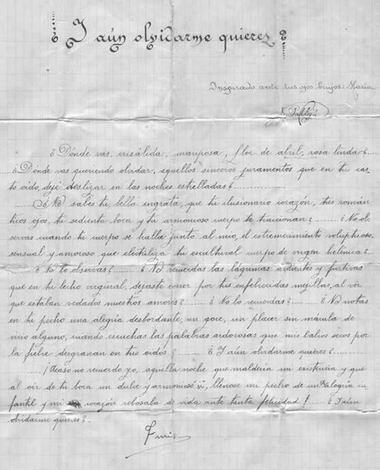 ¿Y aún olvidarme quieres?
Inspirado ante tus ojos brujos: María
¿Dónde vas, crisálida, mariposa, flor de abril, rosa linda?
¿Dónde vas queriendo olvidar, aquellos sinceros juramentos que en tu cas
to oido, dejé deslizar en las noches estrelladas?
¿No sabes tu bella ingrata, que tu ilusionario corazón, tus román
ticos ojos, tu sedienta boca y tu armonioso cuerpo te traicionan? ¿No ob
servas cuando tu cuerpo se halla junto al mio, el estremecimiento voluptuoso,
sensual y amoroso que electriza tu escultural cuerpo de origen helénico?
¿No lo observas? ¿No recuerdas las lágrimas ardientes y furtivas
que en tu lecho virginal, dejaste correr por tus enfebrecidas mejillas, al oir
que estaban vedados nuestros amores? ¿No lo recuerdas? ¿No notas
en tu pecho una alegría desbordante, un goce, un placer sin mácula de
niño alguno, cuando escuchas las palabras ardorosas que mis labios secos por
la fiebre desgranan en tus oidos? ¿Y aún olvidarme quieres?
¿Acaso no recuerdo yo, aquella noche que maldecia mi existencia y que
al oir de tu boca un dulce y armonioso si, llenóse mi pecho de una alegria in
fantil y mi corazón rebosaba de vida ante tanta felicidad! ¿Y aún
olvidarme quieres?